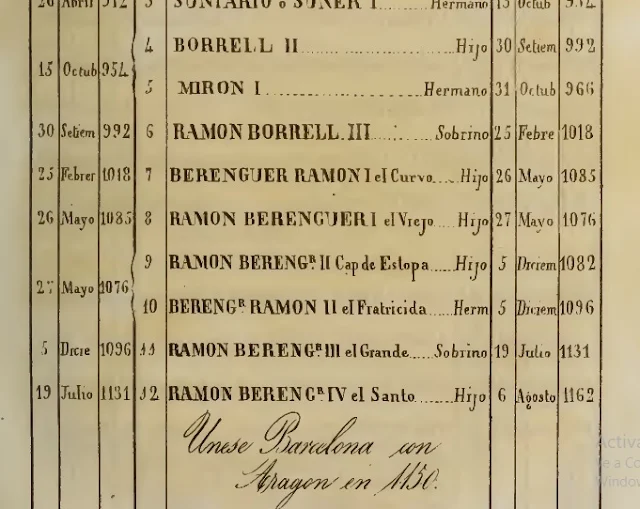 26 Abril 912 3 SUNIARIO o SUÑER I Hermano 15 Octub 954
4 BORRELL II ........ Hijo 30 Setiem 992
15 Octub 954
5 MIRON I ........ Hermano 31 Octub 966
30 Setiem 992 6 RAMON BORRELL III ...... Sobrino 25 Febre 1018
25 Febrer 1018 7 BERENGUER RAMON I el Curvo.... Hijo 26 Mayo 1035
26 Mayo 1035 8 RAMON BERENGUER I el Viejo.... Hijo 27 Mayo 1076
9 RAMON BERENGR. II Cap de Estopa ..... Hijo 5 Diciem 1082
27 Mayo 1076
10 BERENGR. RAMON II el Fratricida ..... Herm 5 Diciem 1096
5 Dicie 1096 11 RAMON BERENGR. III el Grande ..... Sobrino 19 Julio 1131
19 Julio 1131 12 RAMON BERENGR. IV el Santo ....... Hijo 6 Agosto 1162
Unese Barcelona con
Aragon en 1150.
Activa
Ve a Co
Windows